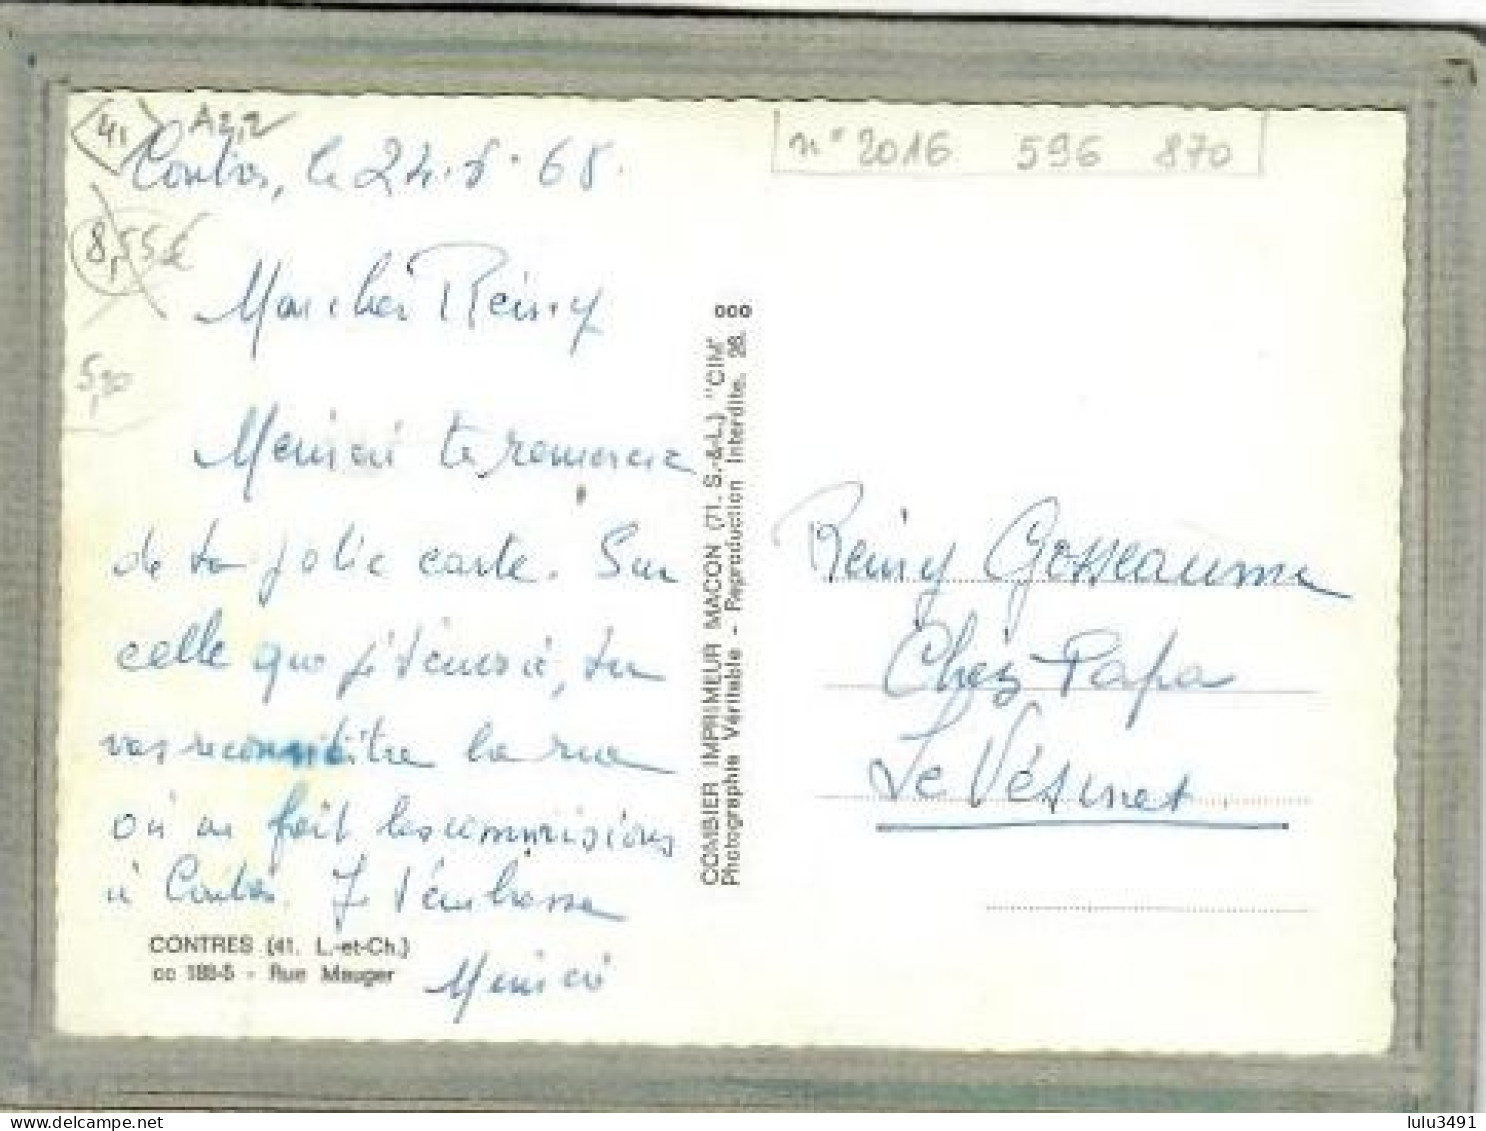 41 A2,2
Contres, le 24.8.68.
n° 2016 596 870
8,55€
5,90
Mon cher Rémy
Mémé te remercie
de ta jolie carte. Sur
celle que je t'envoie, tu
vas reconnaitre la rue
où on fait les commissions
à Contres. Je t'embrasse
CONTRES (41. L.-et-Ch.)
cc 188-5 - Rue Mauger
COMBIER IMPRIMEUR MACON (71. S.-&-L.) "CIM"
Photographie Véritable - Reproduction Interdite. 26.
Rémy Gosseaume
Chez Papa
Le Vésinet
lulu3491